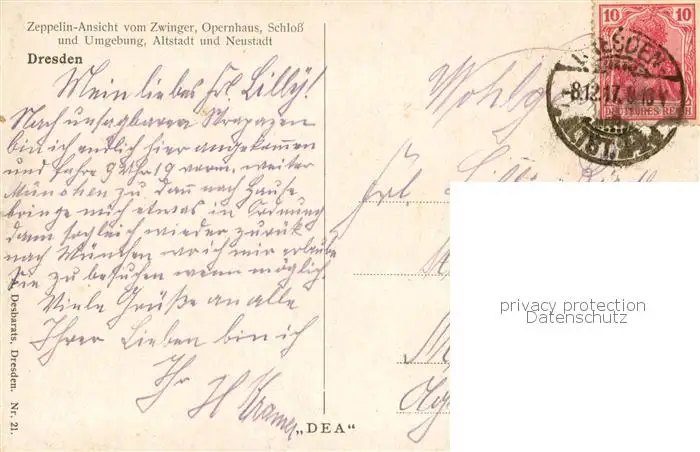 Zeppelin-Ansicht vom Zwinger, Opernhaus, Schloß
und Umgebung, Altstadt und Neustadt
Dresden
Mein liebes Frl. Lilly!
Nach unsagbaren Strapazen
bin ich endlich hier angekommen
und fahre 9 Uhr 19 vorm. weiter
München zu dann nach Hause
bringe mich etwas in Ordnung
dann sogleich wieder zurück
nach München wo ich mir erlaube
Sie zu besuchen wenn möglich.
Viele Grüße an alle
Ihrer Lieben bin ich
Ihr
H Kramer
Desbarats, Dresden. Nr. 21.
"DEA"
10 10
DEUTSCHES REICH
DRESDEN
-8.12.17.
ALTST.
Wohlg
Frl.
privacy protection
Datenschutz